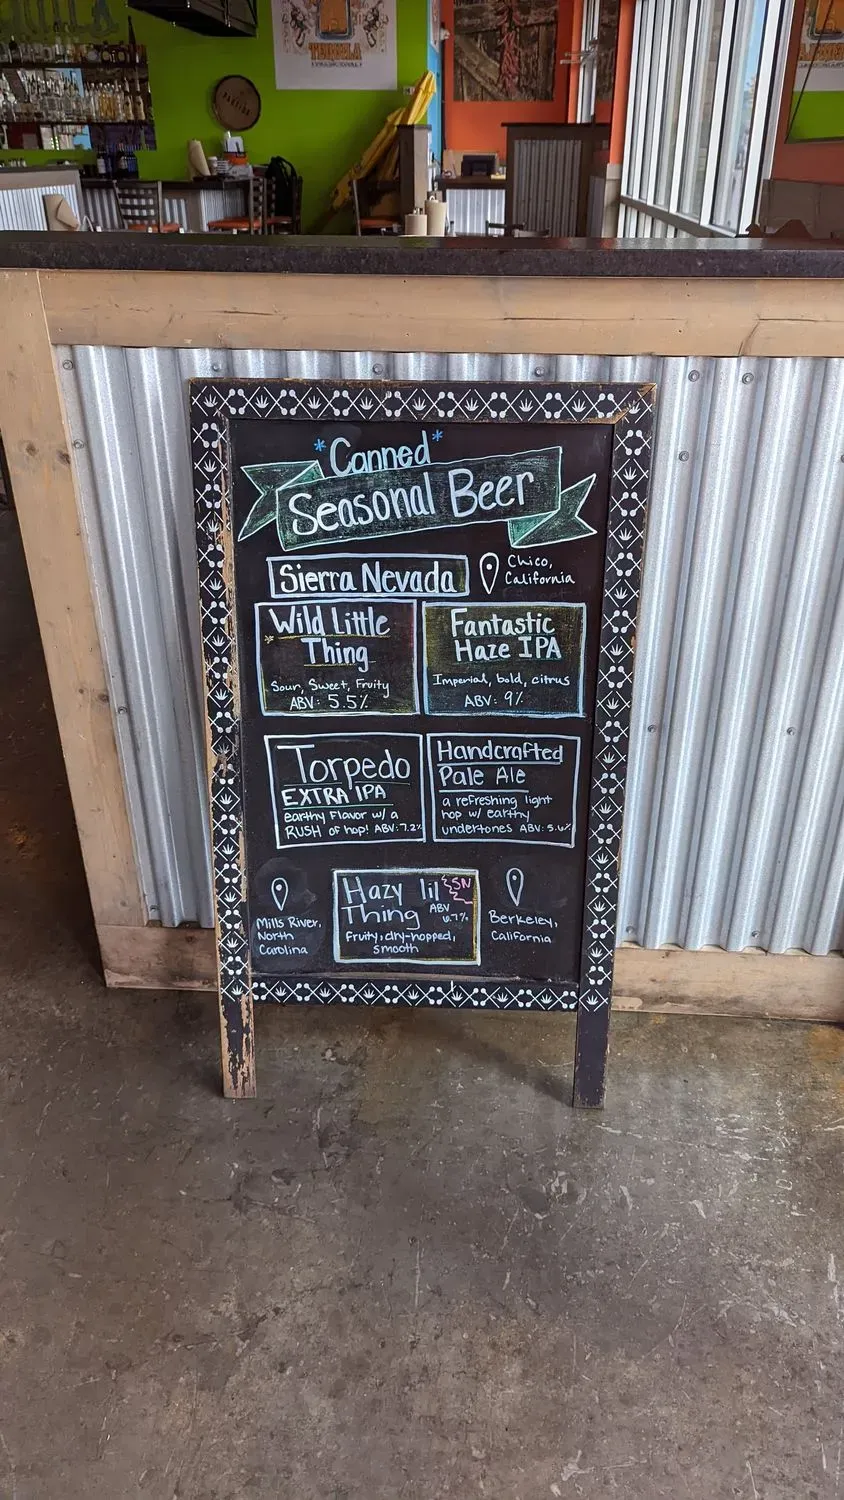 TEQUILA
*Canned*
Seasonal Beer
Sierra Nevada
Chico,
California
Wild Little
Thing
Sour, Sweet, Fruity
ABV: 5.5%
Fantastic
Haze IPA
Imperial, bold, citrus
ABV: 9%
Torpedo
EXTRA IPA
earthy Flavor w/ a
RUSH of hop! ABV: 7.2%
Handcrafted
Pale Ale
a refreshing light
hop w/ earthy
undertones ABV: 5.6%
Mills River,
North
Carolina
Hazy lil
Thing
SN
ABV
6.7%
fruity, dry-hopped,
smooth
Berkeley,
California